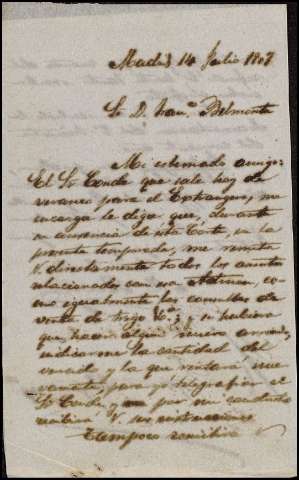 Madrid 14 Julio 1887
Sr. D. Man.º Belmonte
Mi estimado amigo:
El Sr. Conde que sale hoy de
veraneo para el Extranjero, me
encarga le diga que, durante
su ausencia de esta Corte, en la
presente temporada, me remita
V. directamente todos los asuntos
relacionados con esa
como igualmente las consultas de
venta de trigo &ª; si hubiera
que hacer algun nuevo
indicarme la cantidad del
vencido y la que rentará nue
vamente para yo telegrafiar al
Sr. Conde, y que por mi conducto
reciba V. sus instrucciones
Tampoco remitirá V.